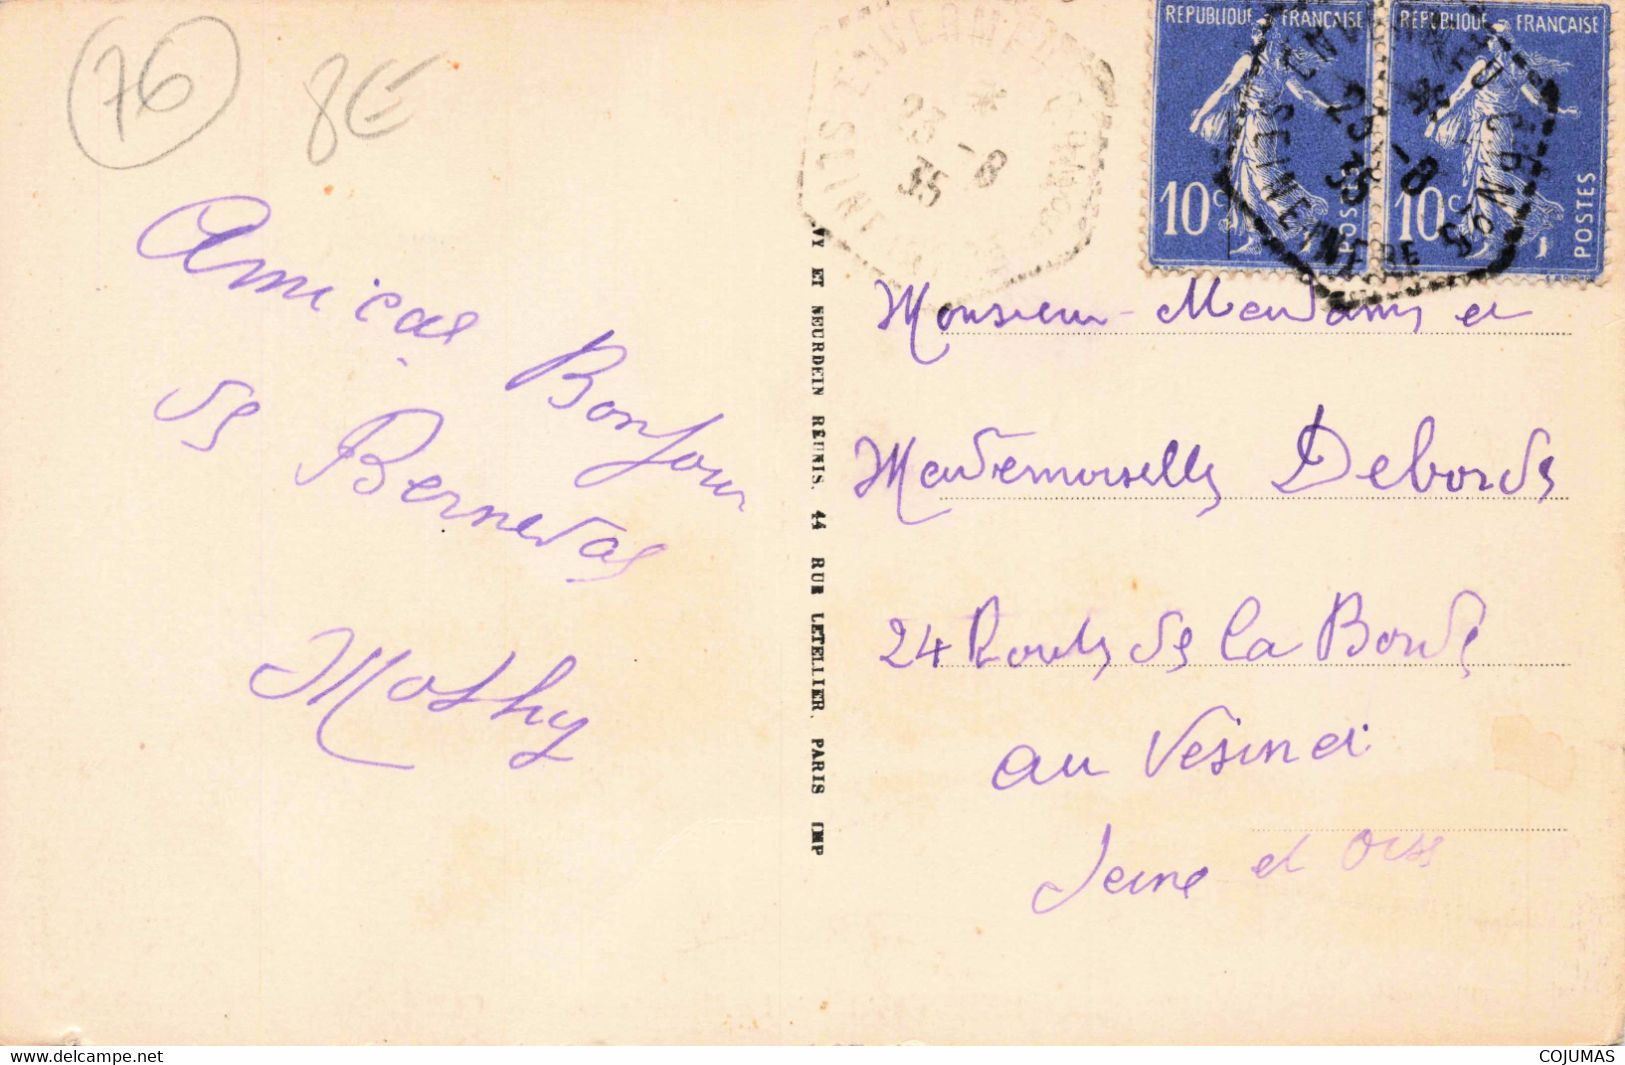 76
8€
Amical Bonjour
de Bernedal
Mathy
VY ET NEURDEIN RÉUNIS. 44 RUE LETELLIER. PARIS IMP
REPUBLIQUE FRANÇAISE
10c POSTES
REPUBLIQUE FRANÇAISE
10c POSTES
23 -8
35
23 -8
35
SEINE INFRE
Monsieur Madame et
Mademoiselle Debords
24 Route de la Borde
au Vésinet
Seine et Oise
delcampe.net
COJUMAS